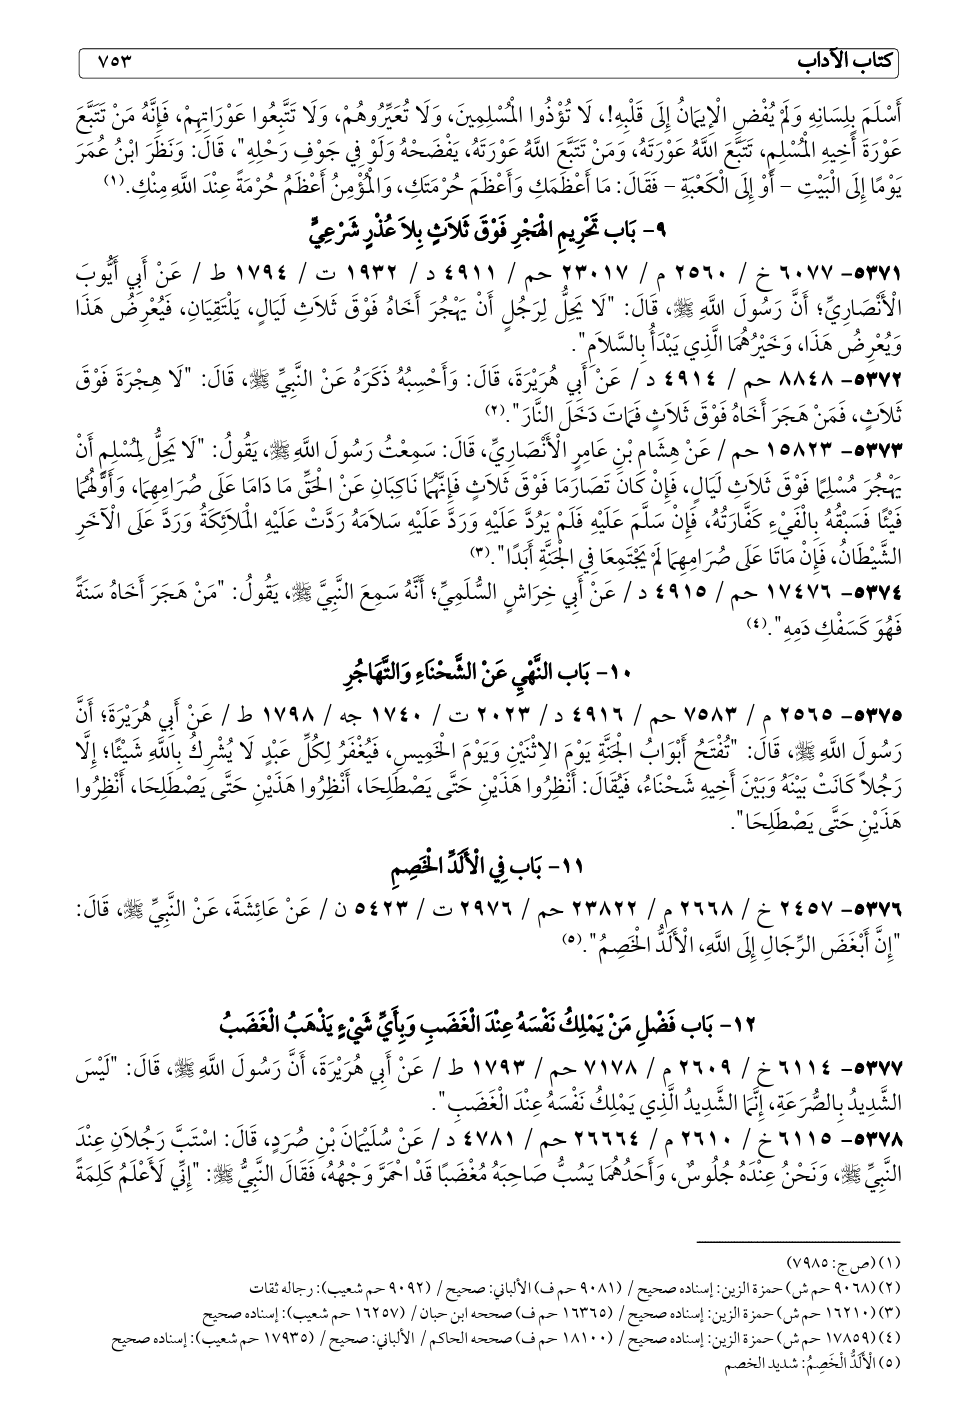 كتاب الآداب ٧٥٣
أَسْلَمَ بِلِسَانِهِ وَلَمْ يُفْضِ الْإِيمَانُ إِلَى قَلْبِهِ!، لَا تُؤْذُوا الْمُسْلِمِينَ، وَلَا تُعَيِّرُوهُمْ، وَلَا تَتَّبِعُوا عَوْرَاتِهِمْ، فَإِنَّهُ مَنْ تَتَبَّعَ
عَوْرَةَ أَخِيهِ الْمُسْلِمِ، تَتَبَّعَ اللَّهُ عَوْرَتَهُ، وَمَنْ تَتَبَّعَ اللَّهُ عَوْرَتَهُ، يَفْضَحْهُ وَلَوْ فِي جَوْفِ رَحْلِهِ"، قَالَ: وَنَظَرَ ابْنُ عُمَرَ
يَوْمًا إِلَى الْبَيْتِ – أَوْ إِلَى الْكَعْبَةِ – فَقَالَ: مَا أَعْظَمَكِ وَأَعْظَمَ حُرْمَتَكِ، وَالْمُؤْمِنُ أَعْظَمُ حُرْمَةً عِنْدَ اللَّهِ مِنْكِ.(١)
٩- بَاب تَحْرِيمِ الْهَجْرِ فَوْقَ ثَلَاثٍ بِلاَ عُذْرٍ شَرْعِيٍّ
٥٣٧١- ٦٠٧٧ خ / ٢٥٦٠ م / ٢٣٠١٧ حم / ٤٩١١ د / ١٩٣٢ ت / ١٧٩٤ ط / عَنْ أَبِي أَيُّوبَ
الْأَنْصَارِيِّ؛ أَنَّ رَسُولَ اللَّهِ ﷺ، قَالَ: "لَا يَحِلُّ لِرَجُلٍ أَنْ يَهْجُرَ أَخَاهُ فَوْقَ ثَلَاثِ لَيَالٍ، يَلْتَقِيَانِ، فَيُعْرِضُ هَذَا
وَيُعْرِضُ هَذَا، وَخَيْرُهُمَا الَّذِي يَبْدَأُ بِالسَّلاَمِ".
٥٣٧٢- ٨٨٤٨ حم / ٤٩١٤ د / عَنْ أَبِي هُرَيْرَةَ، قَالَ: وَأَحْسِبُهُ ذَكَرَهُ عَنْ النَّبِيِّ ﷺ، قَالَ: "لَا هِجْرَةَ فَوْقَ
ثَلَاثٍ، فَمَنْ هَجَرَ أَخَاهُ فَوْقَ ثَلَاثٍ فَمَاتَ دَخَلَ النَّارَ".(٢)
٥٣٧٣- ١٥٨٢٣ حم / عَنْ هِشَامِ بْنِ عَامِرٍ الْأَنْصَارِيِّ، قَالَ: سَمِعْتُ رَسُولَ اللَّهِ ﷺ، يَقُولُ: "لَا يَحِلُّ لِمُسْلِمٍ أَنْ
يَهْجُرَ مُسْلِمًا فَوْقَ ثَلَاثِ لَيَالٍ، فَإِنْ كَانَ تَصَارَمَا فَوْقَ ثَلَاثٍ فَإِنَّهُمَا نَاكِبَانِ عَنْ الْحَقِّ مَا دَامَا عَلَى صُرَامِهِمَا، وَأَوَّلُهُمَا
فَيْئًا فَسَبْقُهُ بِالْفَيْءِ كَفَّارَتُهُ، فَإِنْ سَلَّمَ عَلَيْهِ فَلَمْ يَرُدَّ عَلَيْهِ وَرَدَّ عَلَيْهِ سَلَامَهُ رَدَّتْ عَلَيْهِ الْمَلَائِكَةُ وَرَدَّ عَلَى الْآخَرِ
الشَّيْطَانُ، فَإِنْ مَاتَا عَلَى صُرَامِهِمَا لَمْ يَجْتَمِعَا فِي الْجَنَّةِ أَبَدًا".(٣)
٥٣٧٤- ١٧٤٧٦ حم / ٤٩١٥ د / عَنْ أَبِي خِرَاشٍ السُّلَمِيِّ؛ أَنَّهُ سَمِعَ النَّبِيَّ ﷺ، يَقُولُ: "مَنْ هَجَرَ أَخَاهُ سَنَةً
فَهُوَ كَسَفْكِ دَمِهِ".(٤)
١٠- بَاب النَّهْيِ عَنْ الشَّحْنَاءِ وَالتَّهَاجُرِ
٥٣٧٥- ٢٥٦٥ م / ٧٥٨٣ حم / ٤٩١٦ د / ٢٠٢٣ ت / ١٧٤٠ جه / ١٧٩٨ ط / عَنْ أَبِي هُرَيْرَةَ؛ أَنَّ
رَسُولَ اللَّهِ ﷺ، قَالَ: "تُفْتَحُ أَبْوَابُ الْجَنَّةِ يَوْمَ الِاثْنَيْنِ وَيَوْمَ الْخَمِيسِ، فَيُغْفَرُ لِكُلِّ عَبْدٍ لَا يُشْرِكُ بِاللَّهِ شَيْئًا؛ إِلَّا
رَجُلاً كَانَتْ بَيْنَهُ وَبَيْنَ أَخِيهِ شَحْنَاءُ، فَيُقَالَ: أَنْظِرُوا هَذَيْنِ حَتَّى يَصْطَلِحَا، أَنْظِرُوا هَذَيْنِ حَتَّى يَصْطَلِحَا، أَنْظِرُوا
هَذَيْنِ حَتَّى يَصْطَلِحَا".
١١- بَاب فِي الْأَلَدِّ الْخَصِمِ
٥٣٧٦- ٢٤٥٧ خ / ٢٦٦٨ م / ٢٣٨٢٢ حم / ٢٩٧٦ ت / ٥٤٢٣ ن / عَنْ عَائِشَةَ، عَنْ النَّبِيِّ ﷺ، قَالَ:
"إِنَّ أَبْغَضَ الرِّجَالِ إِلَى اللَّهِ، الْأَلَدُّ الْخَصِمُ".(٥)
١٢- بَاب فَضْلِ مَنْ يَمْلِكُ نَفْسَهُ عِنْدَ الْغَضَبِ وَبِأَيِّ شَيْءٍ يَذْهَبُ الْغَضَبُ
٥٣٧٧- ٦١١٤ خ / ٢٦٠٩ م / ٧١٧٨ حم / ١٧٩٣ ط / عَنْ أَبِي هُرَيْرَةَ، أَنَّ رَسُولَ اللَّهِ ﷺ، قَالَ: "لَيْسَ
الشَّدِيدُ بِالصُّرَعَةِ، إِنَّمَا الشَّدِيدُ الَّذِي يَمْلِكُ نَفْسَهُ عِنْدَ الْغَضَبِ".
٥٣٧٨- ٦١١٥ خ / ٢٦١٠ م / ٢٦٦٦٤ حم / ٤٧٨١ د / عَنْ سُلَيْمَانَ بْنِ صُرَدٍ، قَالَ: اسْتَبَّ رَجُلاَنِ عِنْدَ
النَّبِيِّ ﷺ، وَنَحْنُ عِنْدَهُ جُلُوسٌ، وَأَحَدُهُمَا يَسُبُّ صَاحِبَهُ مُغْضَبًا قَدْ احْمَرَّ وَجْهُهُ، فَقَالَ النَّبِيُّ ﷺ: "إِنِّي لَأَعْلَمُ كَلِمَةً
(١) (ص ج: ٧٩٨٥)
(٢) (٩٠٦٨ حم ش) حمزة الزين: إسناده صحيح / (٩٠٨١ حم ف) الألباني: صحيح / (٩٠٩٢ حم شعيب): رجاله ثقات
(٣) (١٦٢١٠ حم ش) حمزة الزين: إسناده صحيح / (١٦٣٦٥ حم ف) صححه ابن حبان / (١٦٢٥٧ حم شعيب): إسناده صحيح
(٤) (١٧٨٥٩ حم ش) حمزة الزين: إسناده صحيح / (١٨١٠٠ حم ف) صححه الحاكم / الألباني: صحيح / (١٧٩٣٥ حم شعيب): إسناده صحيح
(٥) الْأَلَدُّ الْخَصِمُ: شديد الخصم